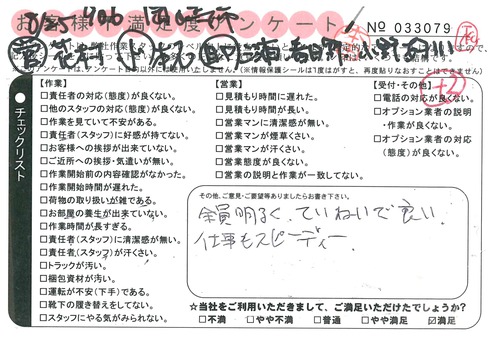 お客様不満足度アンケート
No 033079
チェックリスト
【作業】
□責任者の対応(態度)が良くない。
□他のスタッフの対応(態度)が良くない。
□作業を見ていて不安がある。
□責任者(スタッフ)に好感が持てない。
□お客様への挨拶が出来ていない。
□ご近所への挨拶・気遣いが無い。
□作業開始前の内容確認がなかった。
□作業開始時間が遅れた。
□荷物の取り扱いが雑である。
□お部屋の養生が出来ていない。
□作業時間が長すぎる。
□責任者(スタッフ)に清潔感が無い。
□責任者(スタッフ)が汗くさい。
□トラックが汚い。
□梱包資材が汚い。
□運転が不安(下手)である。
□靴下の履き替えをしてない。
□スタッフにやる気がみられない。
【営業】
□見積もり時間に遅れた。
□見積もり時間が長い。
□営業マンに清潔感が無い。
□営業マンが煙草くさい。
□営業マンが汗くさい。
□営業態度が良くない。
□営業の説明と作業が一致してない。
【受付・その他】
□電話の対応が良くない。
□オプション業者の説明
・作業が良くない。
□オプション業者の対応
(態度)が良くない。
その他、ご意見・ご要望等ありましたらお書き下さい。
全員明るく、ていねいで良い。
仕事もスピーディー
☆当社をご利用いただきまして、ご満足いただけたでしょうか?
□不満 □やや不満 □普通 □やや満足 ☑満足